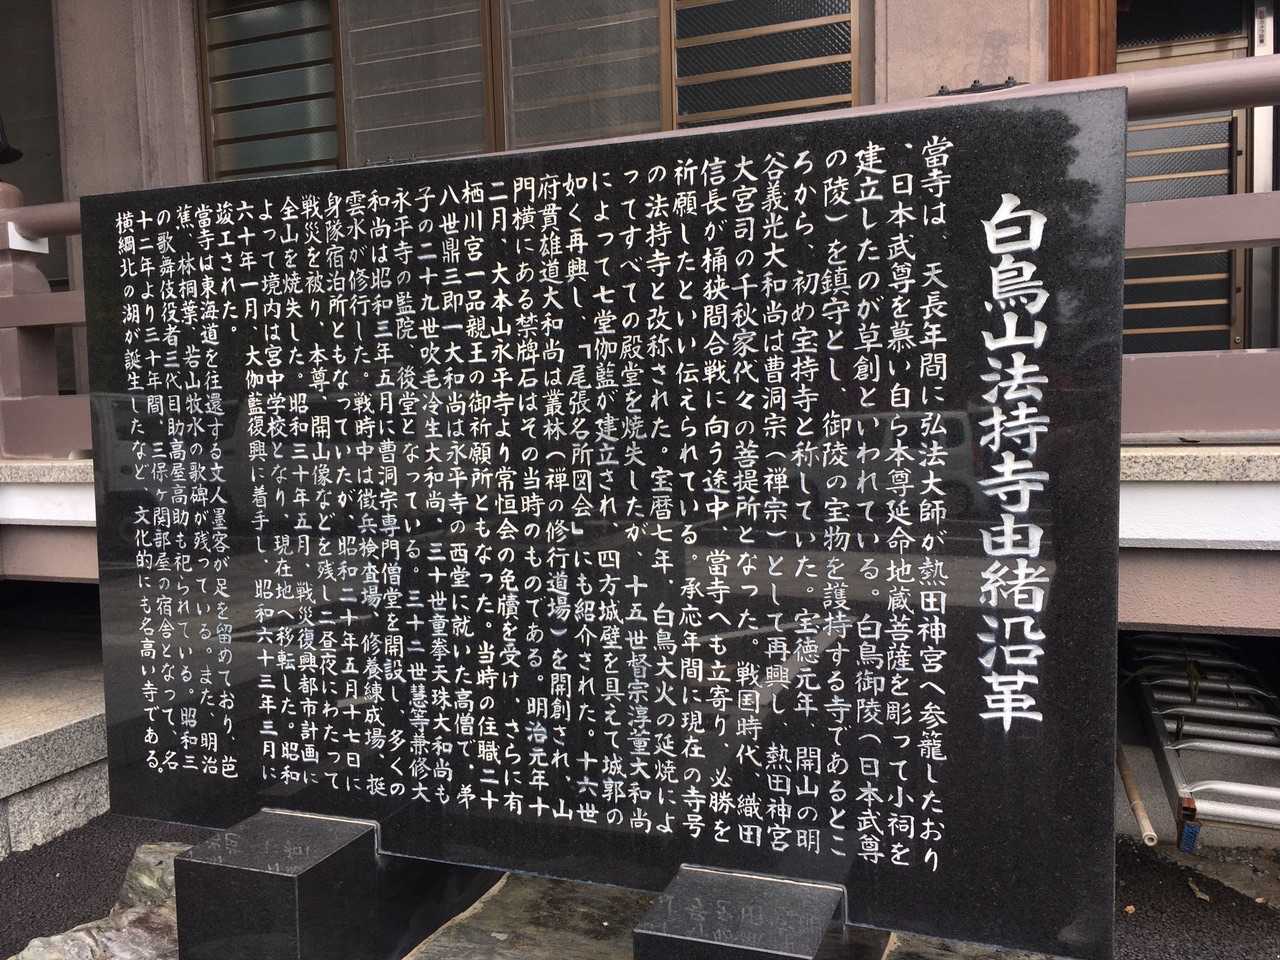 白鳥山法持寺由緒沿革
當寺は、天長年間に弘法大師が熱田神宮へ参籠したおり
、日本武尊を慕い自ら本尊延命地蔵菩薩を彫って小祠を
建立したのが草創といわれている。白鳥御陵（日本武尊
の陵）を鎮守とし、御陵の宝物を護持する寺であるとこ
ろから、初め宝持寺と称していた。宝徳元年、開山の明
谷義光大和尚は曹洞宗（禅宗）として再興し、熱田神宮
大宮司の千秋家代々の菩提所となった。戦国時代、織田
信長が桶狭間合戦に向う途中、當寺へも立寄り、必勝を
祈願したといい伝えられている。承応年間に現在の寺号
の法持寺と改称された。宝暦七年、白鳥大火の延焼によ
ってすべての殿堂を焼失したが、十五世督宗淳董大和尚
によって七堂伽藍が建立され、四方城壁を具えて城郭の
如く再興し、「尾張名所図会」にも紹介された。十六世
府貫雄道大和尚は叢林（禅の修行道場）を開創され、山
門横にある禁牌石はその当時のものである。明治元年十
二月、大本山永平寺より常恒会の免牘を受け、さらに有
栖川宮一品親王の御祈願所ともなった。当時の住職二十
八世鼎三即一大和尚は永平寺の西堂に就いた高僧で、弟
子の二十九世吹毛冷生大和尚、三十世童奉天珠大和尚も
永平寺の監院、後堂となっている。三十二世慧等兼修大
和尚は昭和三年五月に曹洞宗専門僧堂を開設し、多くの
雲水が修行した。戦時中は徴兵検査場、修養練成場、挺
身隊宿泊所ともなっていたが、昭和二十年五月十七日に
戦災を被り、本尊、開山像などを残し二昼夜にわたって
全山を焼失した。昭和三十年五月、戦災復興都市計画に
よって境内は宮中学校となり、現在地へ移転した。昭和
六十年一月、大伽藍復興に着手し、昭和六十三年三月に
竣工された。
當寺は東海道を往還する文人墨客が足を留めており、芭
蕉、林桐葉、岩山牧水の歌碑が残っている。また、明治
の歌舞伎役者三代目助高屋高助も祀られている。昭和三
十二年より三十年間、三保ヶ関部屋の宿舎となって、名
横綱北の湖が誕生したなど、文化的にも名高い寺である。